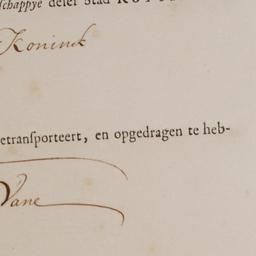 schappye deser Stad
Koninck
etransporteert, en opgedragen te heb-
Vane